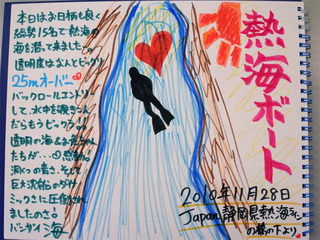 本日はお日柄も良く
総勢15名で熱海の
海を潜って来ました。
透明度はなんとビックリ
25mオーバー
バックロールエントリー
して、水中を覗きこん
だらもうビックリ!!
透明の海&お魚さん
たちが…感激。
洞くつの青さ、そして
巨大沈船のダイナ
ミックさに圧倒され
ましたのさ♪
バンザイ海
熱海ボート
2010年11月28日
Japan静岡県熱海
の橋の下より